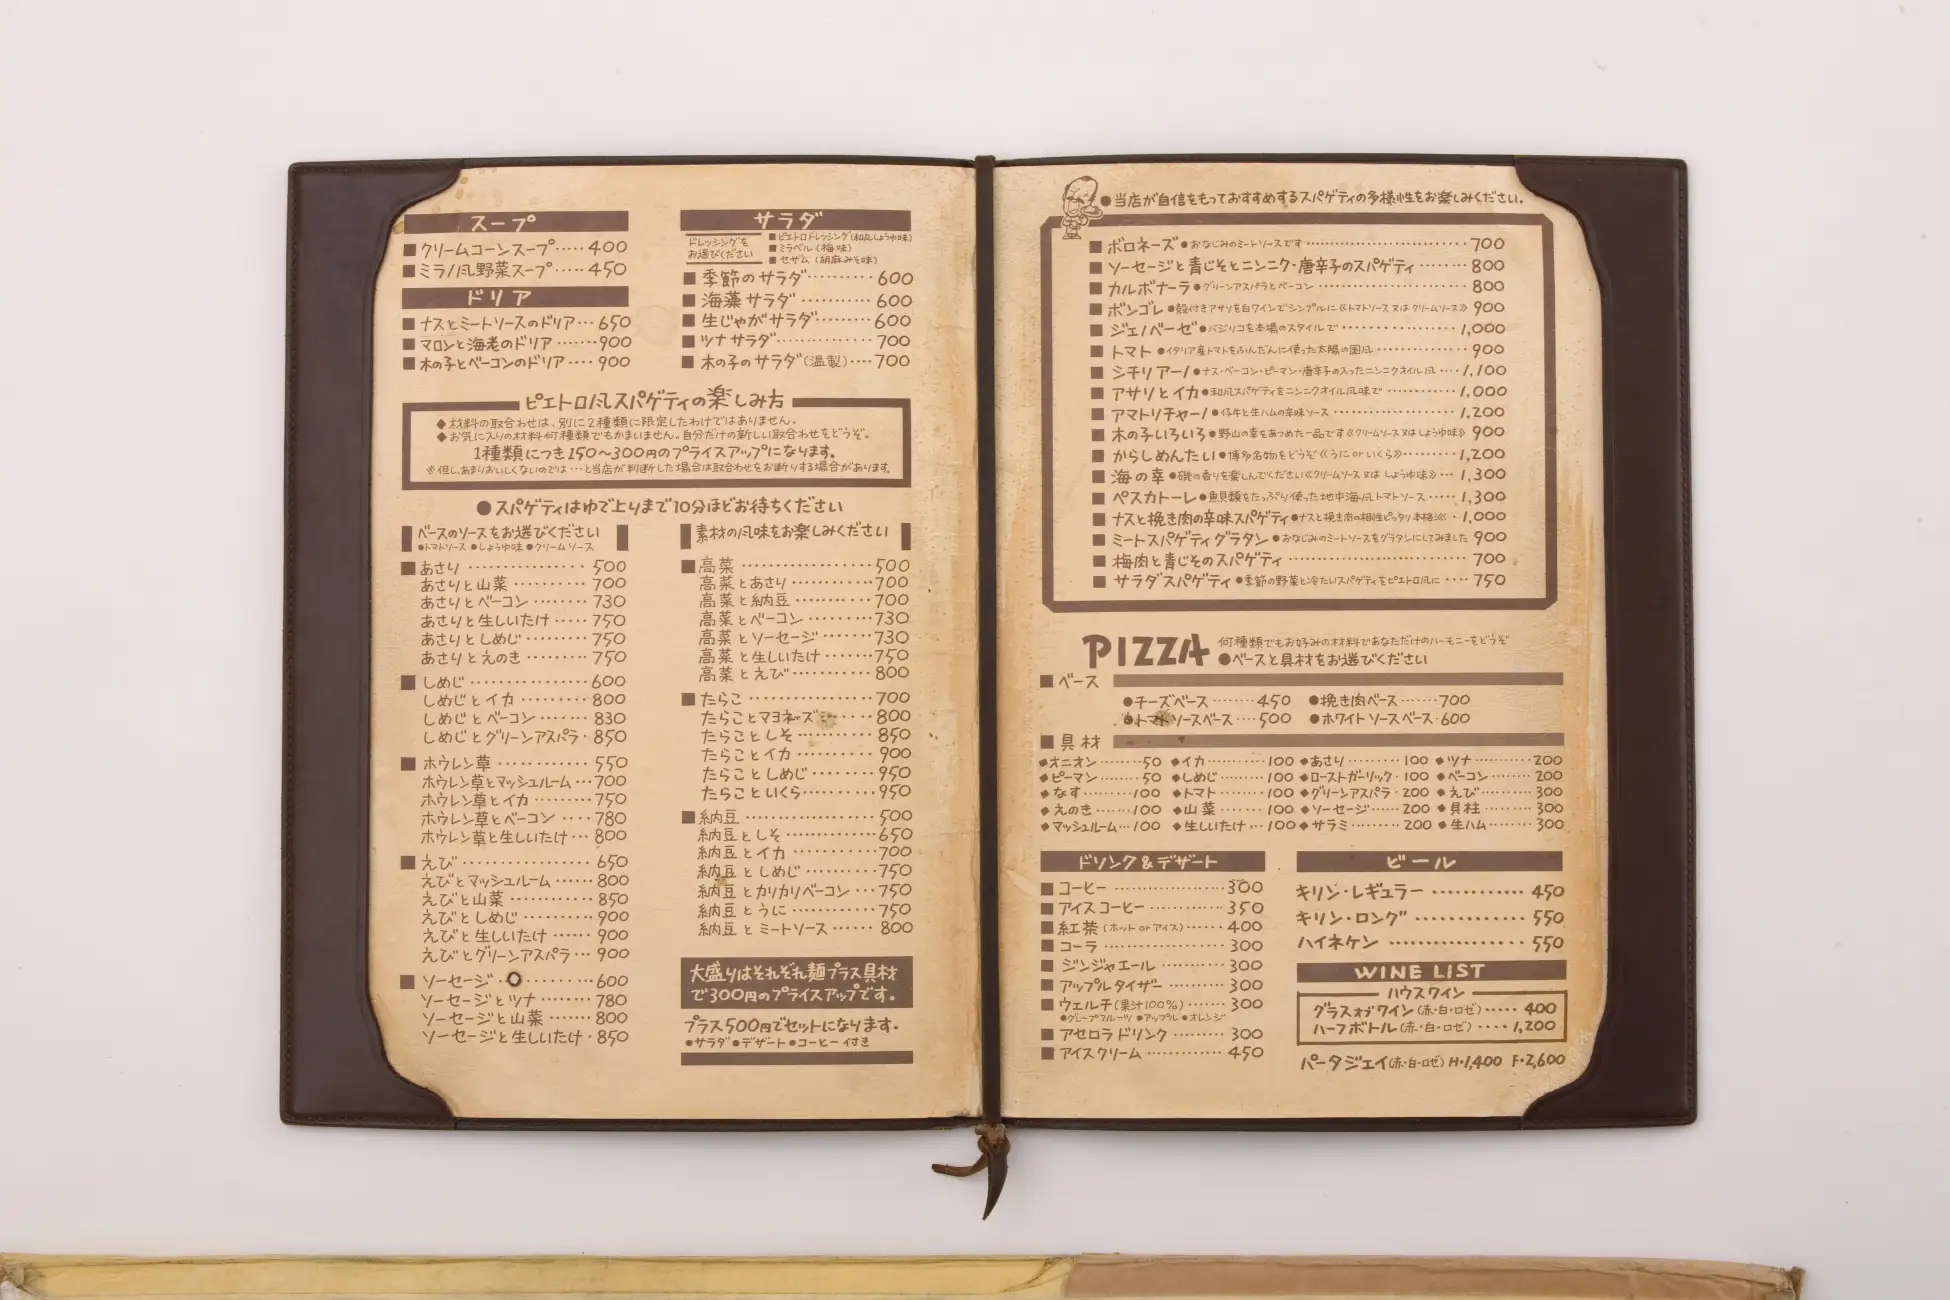 スープ
■クリームコーンスープ……400
■ミラノ風野菜スープ……450
ドリア
■ナスとミートソースのドリア…650
■マロンと海老のドリア……900
■木の子とベーコンのドリア……900
サラダ
ドレッシングを
お選びください
■ピエトロドレッシング(和風しょうゆ味)
■ミラベル(梅味)
■セサム(胡麻みそ味)
■季節のサラダ……600
■海藻サラダ……600
■生じゃがサラダ……600
■ツナサラダ……700
■木の子のサラダ(温製)……700
ピエトロ風スパゲティの楽しみ方
◆材料の取合わせは、別に2種類に限定したわけではありません。
◆お気に入りの材料何種類でもかまいません。自分だけの新しい取合わせをどうぞ。
1種類につき150〜300円のプライスアップになります。
※但し、あまりおいしくないのでは…と当店が判断した場合は取合わせをお断りする場合があります。
●スパゲティはゆで上りまで10分ほどお待ちください
ベースのソースをお選びください
●トマトソース ●しょうゆ味 ●クリームソース
■あさり……500
あさりと山菜……700
あさりとベーコン……730
あさりと生しいたけ……750
あさりとしめじ……750
あさりとえのき……750
■しめじ……600
しめじとイカ……800
しめじとベーコン……830
しめじとグリーンアスパラ・850
■ホウレン草……550
ホウレン草とマッシュルーム…700
ホウレン草とイカ……750
ホウレン草とベーコン……780
ホウレン草と生しいたけ…800
■えび……650
えびとマッシュルーム……800
えびと山菜……850
えびとしめじ……900
えびと生しいたけ……900
えびとグリーンアスパラ…900
■ソーセージ……600
ソーセージとツナ……780
ソーセージと山菜……800
ソーセージと生しいたけ・850
素材の風味をお楽しみください
■高菜……500
高菜とあさり……700
高菜と納豆……700
高菜とベーコン……730
高菜とソーセージ……730
高菜と生しいたけ……750
高菜とえび……800
■たらこ……700
たらことマヨネーズ……800
たらことしそ……850
たらことイカ……900
たらことしめじ……950
たらこといくら……950
■納豆……500
納豆としそ……650
納豆とイカ……700
納豆としめじ……750
納豆とカリカリベーコン…750
納豆とうに……750
納豆とミートソース……800
大盛りはそれぞれ麺プラス具材
で300円のプライスアップです。
プラス500円でセットになります。
●サラダ●デザート●コーヒー付き
●当店が自信をもっておすすめするスパゲティの多様性をお楽しみください。
■ボロネーズ●おなじみのミートソースです……700
■ソーセージと青じそとニンニク・唐辛子のスパゲティ……800
■カルボナーラ●グリーンアスパラとベーコン……800
■ボンゴレ●殻付きアサリを白ワインでシンプルに《トマトソース又はクリームソース》900
■ジェノベーゼ●バジリコを本場のスタイルで……1,000
■トマト●イタリア産トマトをふんだんに使った太陽の国風……900
■シチリアーノ●ナス・ベーコン・ピーマン・唐辛子の入ったニンニクオイル風……1,100
■アサリとイカ●和風スパゲティをニンニクオイル風味で……1,000
■アマトリチャーノ●仔牛と生ハムの辛味ソース……1,200
■木の子いろいろ●野山の幸をあつめた一品です《クリームソース又はしょうゆ味》900
■からしめんたい●博多名物をどうぞ《うに or いくら》……1,200
■海の幸●磯の香りを楽しんでください《クリームソース又はしょうゆ味》…1,300
■ペスカトーレ●魚貝類をたっぷり使った地中海風トマトソース……1,300
■ナスと挽き肉の辛味スパゲティ●ナスと挽き肉の相性ピッタリ本格派・1,000
■ミートスパゲティグラタン●おなじみのミートソースをグラタンにしてみました 900
■梅肉と青じそのスパゲティ……700
■サラダスパゲティ●季節の野菜と冷たいスパゲティをピエトロ風に……750
PIZZA 何種類でもお好みの材料であなただけのハーモニーをどうぞ
●ベースと具材をお選びください
■ベース
●チーズベース……450 ●挽き肉ベース……700
●トマトソースベース……500 ●ホワイトソースベース・600
■具材
◆オニオン……50 ◆イカ……100 ◆あさり……100 ◆ツナ……200
◆ピーマン……50 ◆しめじ……100 ◆ローストガーリック・100 ◆ベーコン……200
◆なす……100 ◆トマト……100 ◆グリーンアスパラ・200 ◆えび……300
◆えのき……100 ◆山菜……100 ◆ソーセージ……200 ◆貝柱……300
◆マッシュルーム…100 ◆生しいたけ…100 ◆サラミ……200 ◆生ハム……300
ドリンク&デザート
■コーヒー……300
■アイスコーヒー……350
■紅茶(ホット or アイス)……400
■コーラ……300
■ジンジャエール……300
■アップルタイザー……300
■ウェルチ(果汁100%)……300
●グレープフルーツ ●アップル ●オレンジ
■アセロラドリンク……300
■アイスクリーム……450
ビール
キリン・レギュラー……450
キリン・ロング……550
ハイネケン……550
WINE LIST
ハウスワイン
グラスオブワイン(赤・白・ロゼ)……400
ハーフボトル(赤・白・ロゼ)……1,200
パータジェイ(赤・白・ロゼ) H・1,400 F・2,600